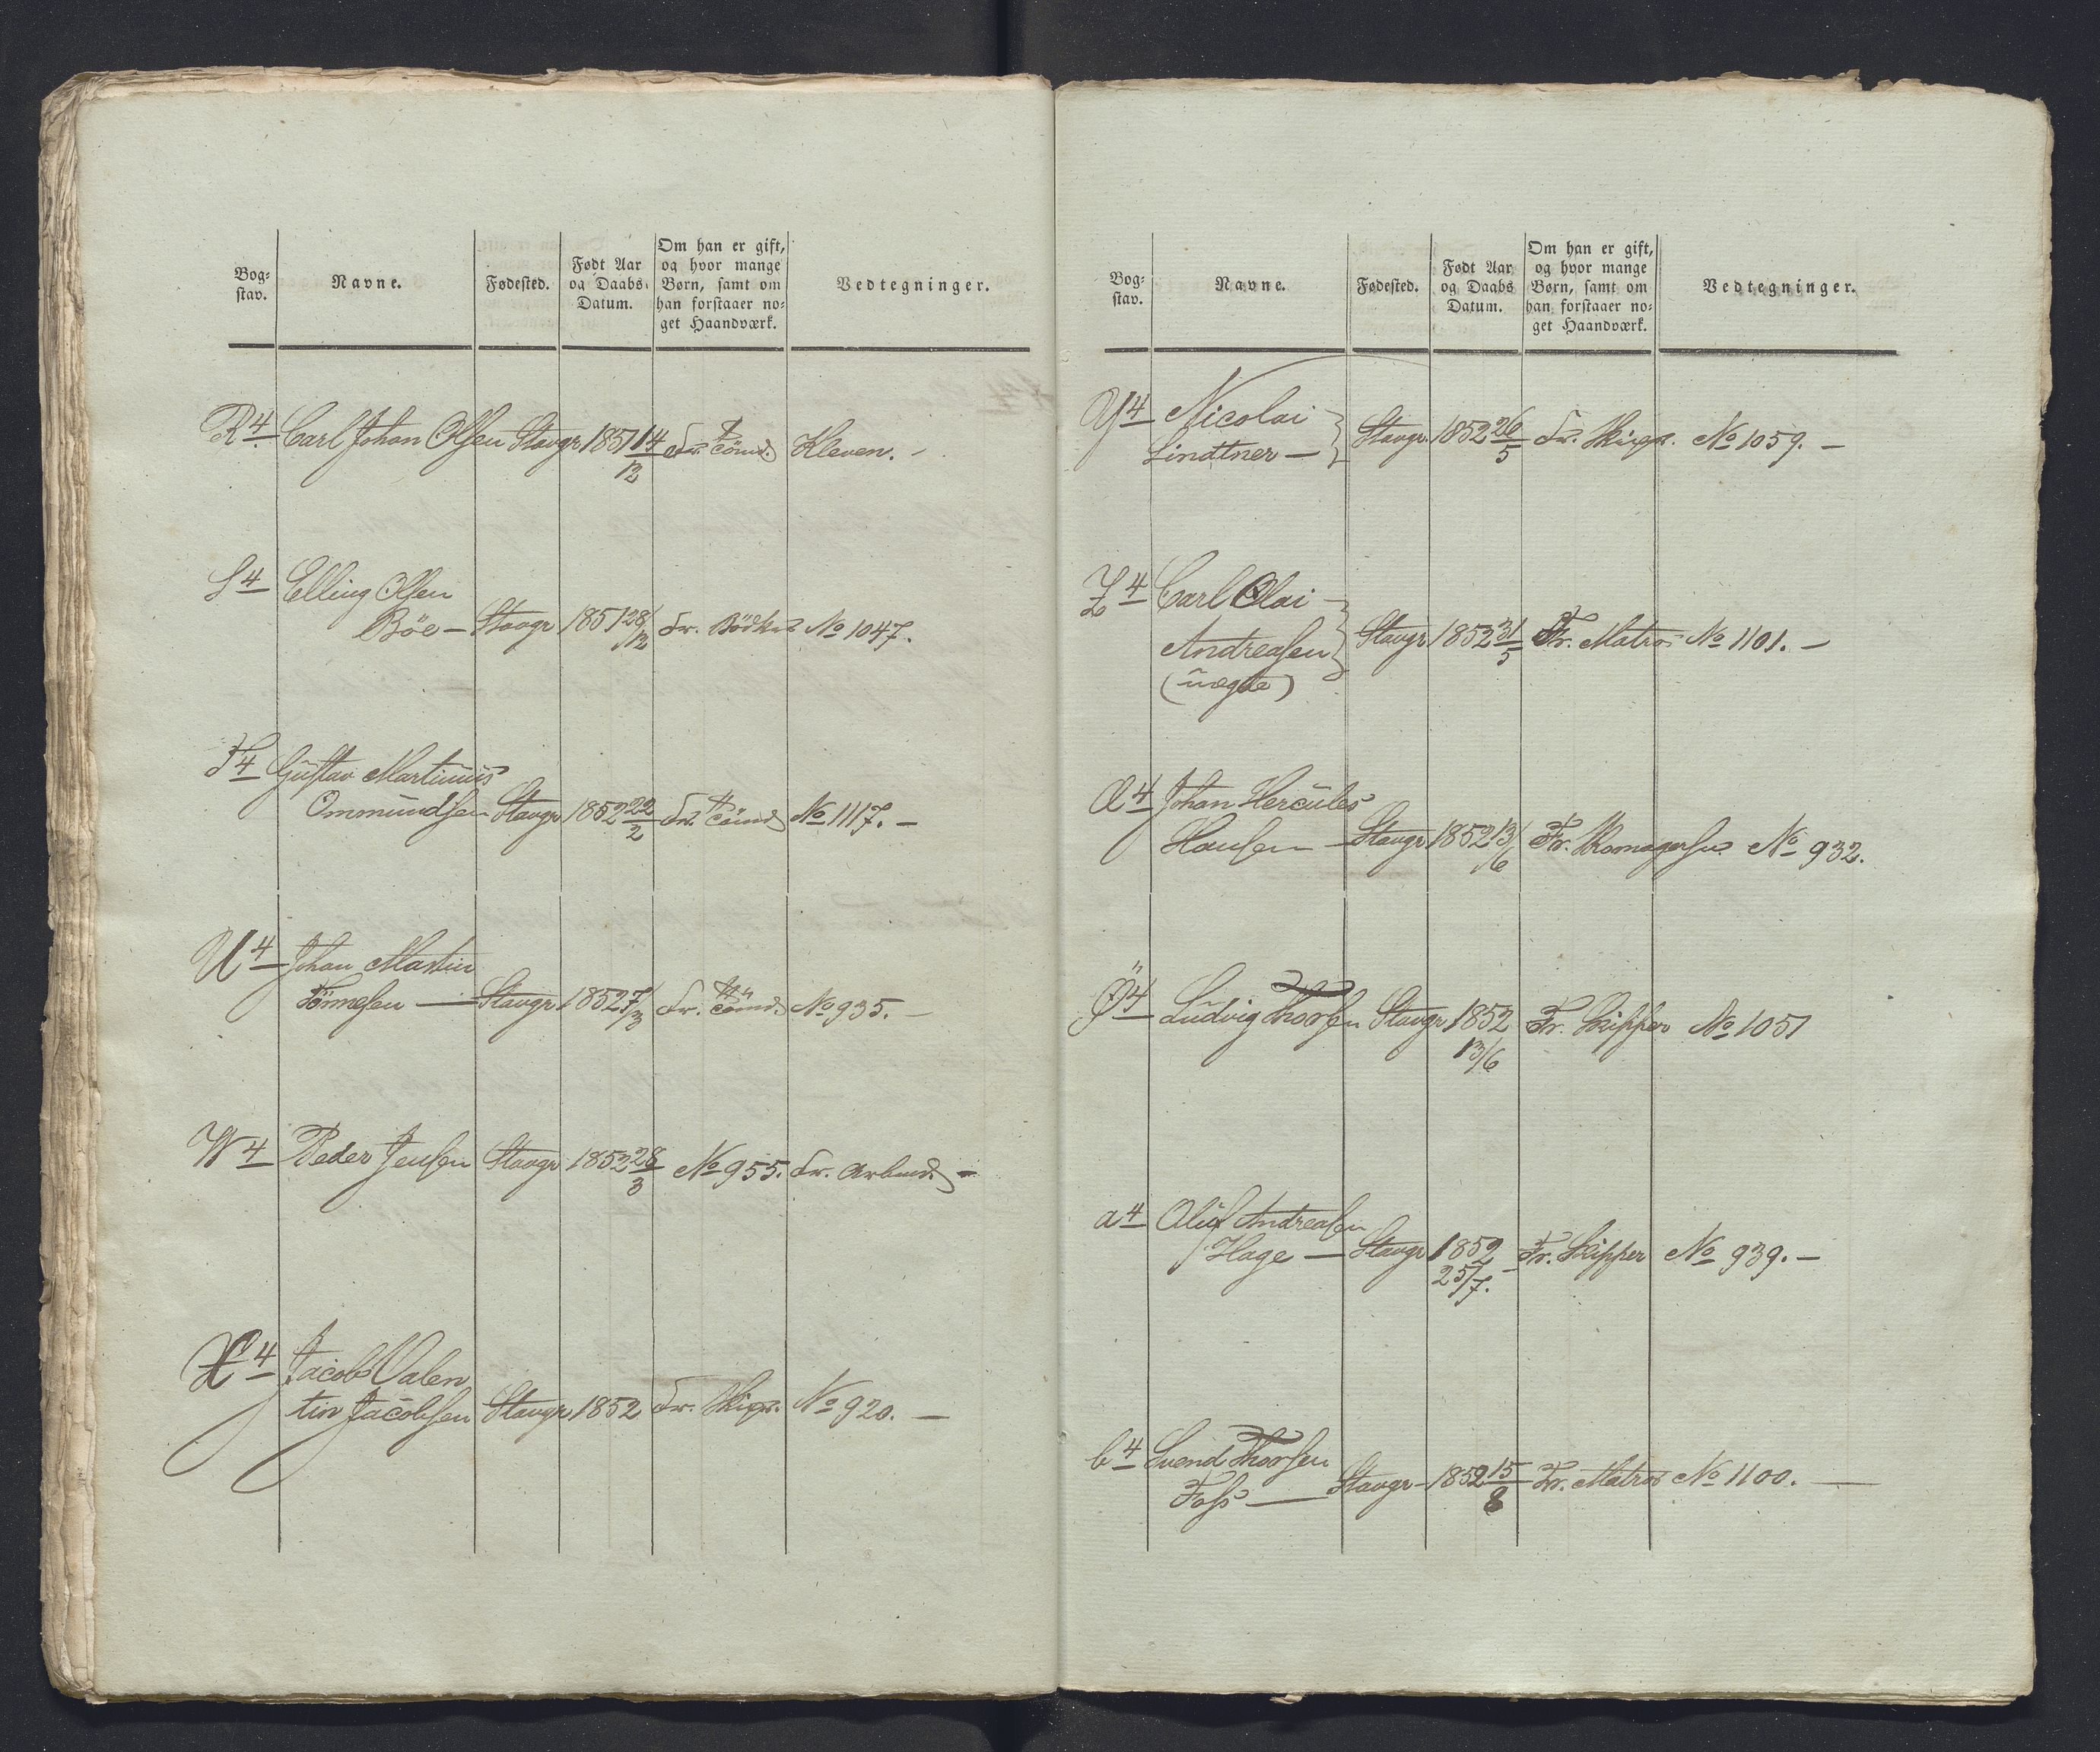 Bog-
stav.
Navne.
Fødested.
Født Aar
og Daabs
Datum.
Om han er gift,
og hvor mange
Børn, samt om
han forstaaer no-
get Haandværk.
Vedtegninger.
R4 Carl Johan Olsen Stavgr 1851 14/12 Fr. Tömd. Kleven. -
S4 Elling Olsen
Böe - Stavgr 1851 28/12 Fr. Bödker No 1047.
T4 Gustav Martinius
Ommundsen Stavgr 1852 22/2 Fr. Tömd No 1117. -
U4 Johan Martin
Tönnesen - Stavgr. 1852 7/3 Fr. Tömd. No 935. -
W4 Peder Jensen Stavgr 1852 28/3 No 955. Fr. Arbmd. -
X4 Jacob Valen
tin Jacobsen Stavgr 1852 Fr. Skipr. No 920. -
Bog-
stav.
Navne.
Fødested.
Født Aar
og Daabs
Datum.
Om han er gift,
og hvor mange
Børn, samt om
han forstaaer no-
get Haandværk.
Vedtegninger.
Y4 Nicolai
Lindtner - Stavgr. 1852 26/5 Fr. Skipr. No 1059. -
Z4 Carl Olai
Andreasen Stavgr 1852 31/5 Fr. Matros No 1101. -
(uægte)
Æ4 Johan Hercules
Hansen - Stavgr 1852 13/6 Fr. No 932.
Ö4 Ludvig Thorsen Stavgr 1852 Fr. Skipper No 1051
13/6
a4 Oluf Andreasen
Hage - Stavgr 1852 Fr. Skipper No 939. -
25/7.
b4 Svend Thorsen
Foss - Stavgr - 1852 15/8 Fr. Matros No 1100. -